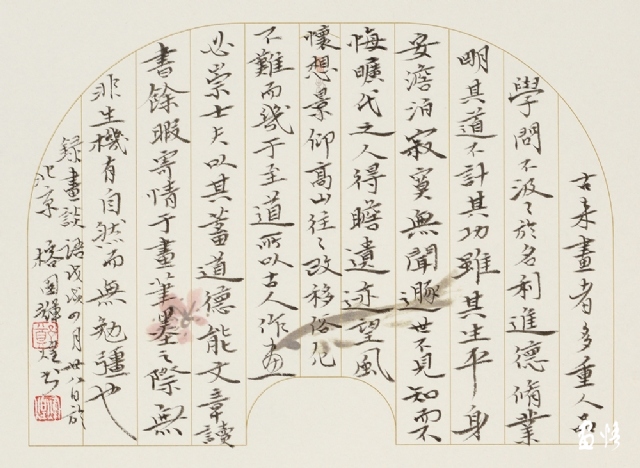 古來畫者多重人品
學問不汲々於名利進德脩業
明其道不計其功雖其生平身
安澹泊寂寞無聞遯世不見知而不
悔曠代之人得瞻遺迹望風
懷想景仰高山往々改移俗見
不難而幾于至道所以古人作畫
必崇士夫以其蓄道德能文章讀
書餘暇寄情于畫筆墨之際無
非生機有自然而無勉彊也
錄畫談語戊戌四月廿八日於
北京 格國
畫悟